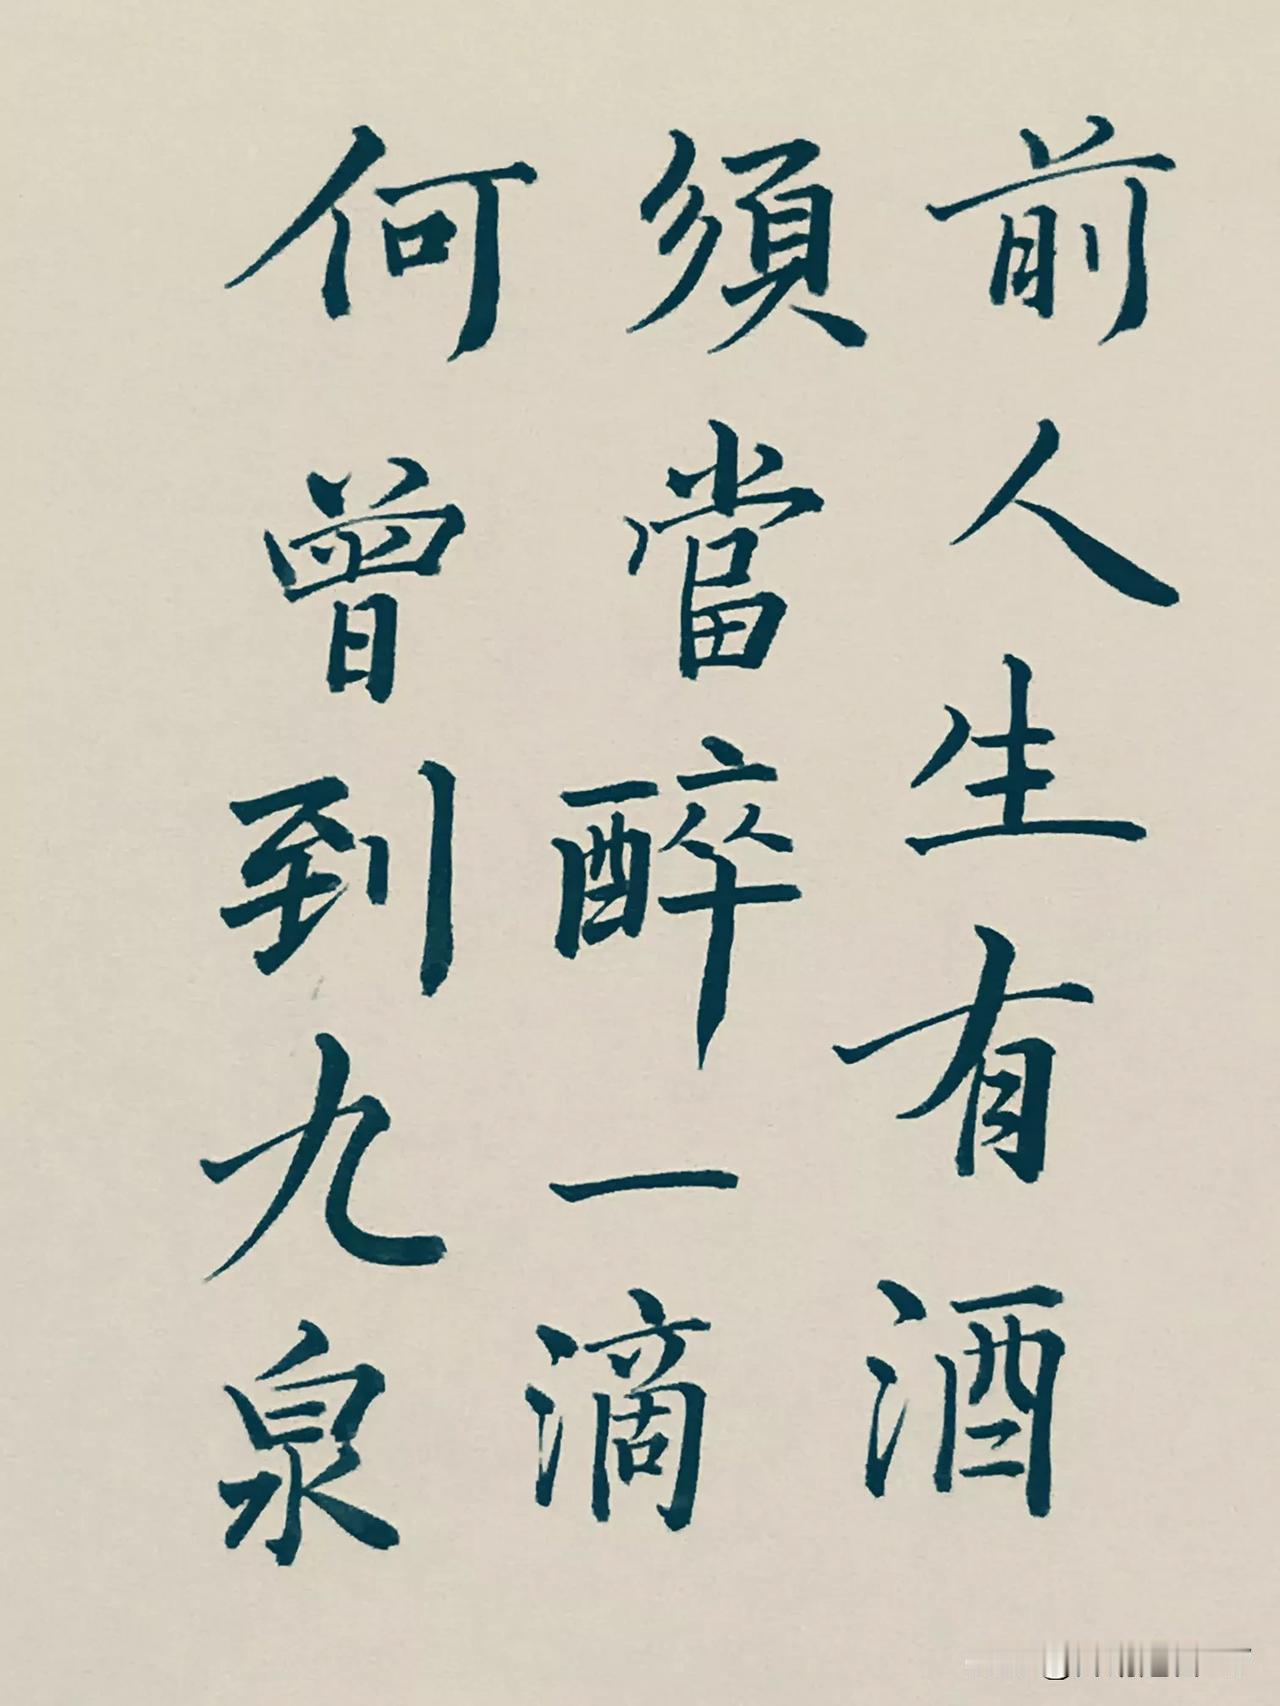 前人生有酒
須當醉一滴
何曾到九泉